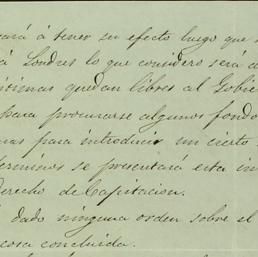 á tener su efecto luego que
Londres lo que considero será
quedan libres al
para procurarse algunos
para introducir un cierto
se presentará esta
derecho de Capitacion.
dado ninguna orden sobre el
cosa concluida.